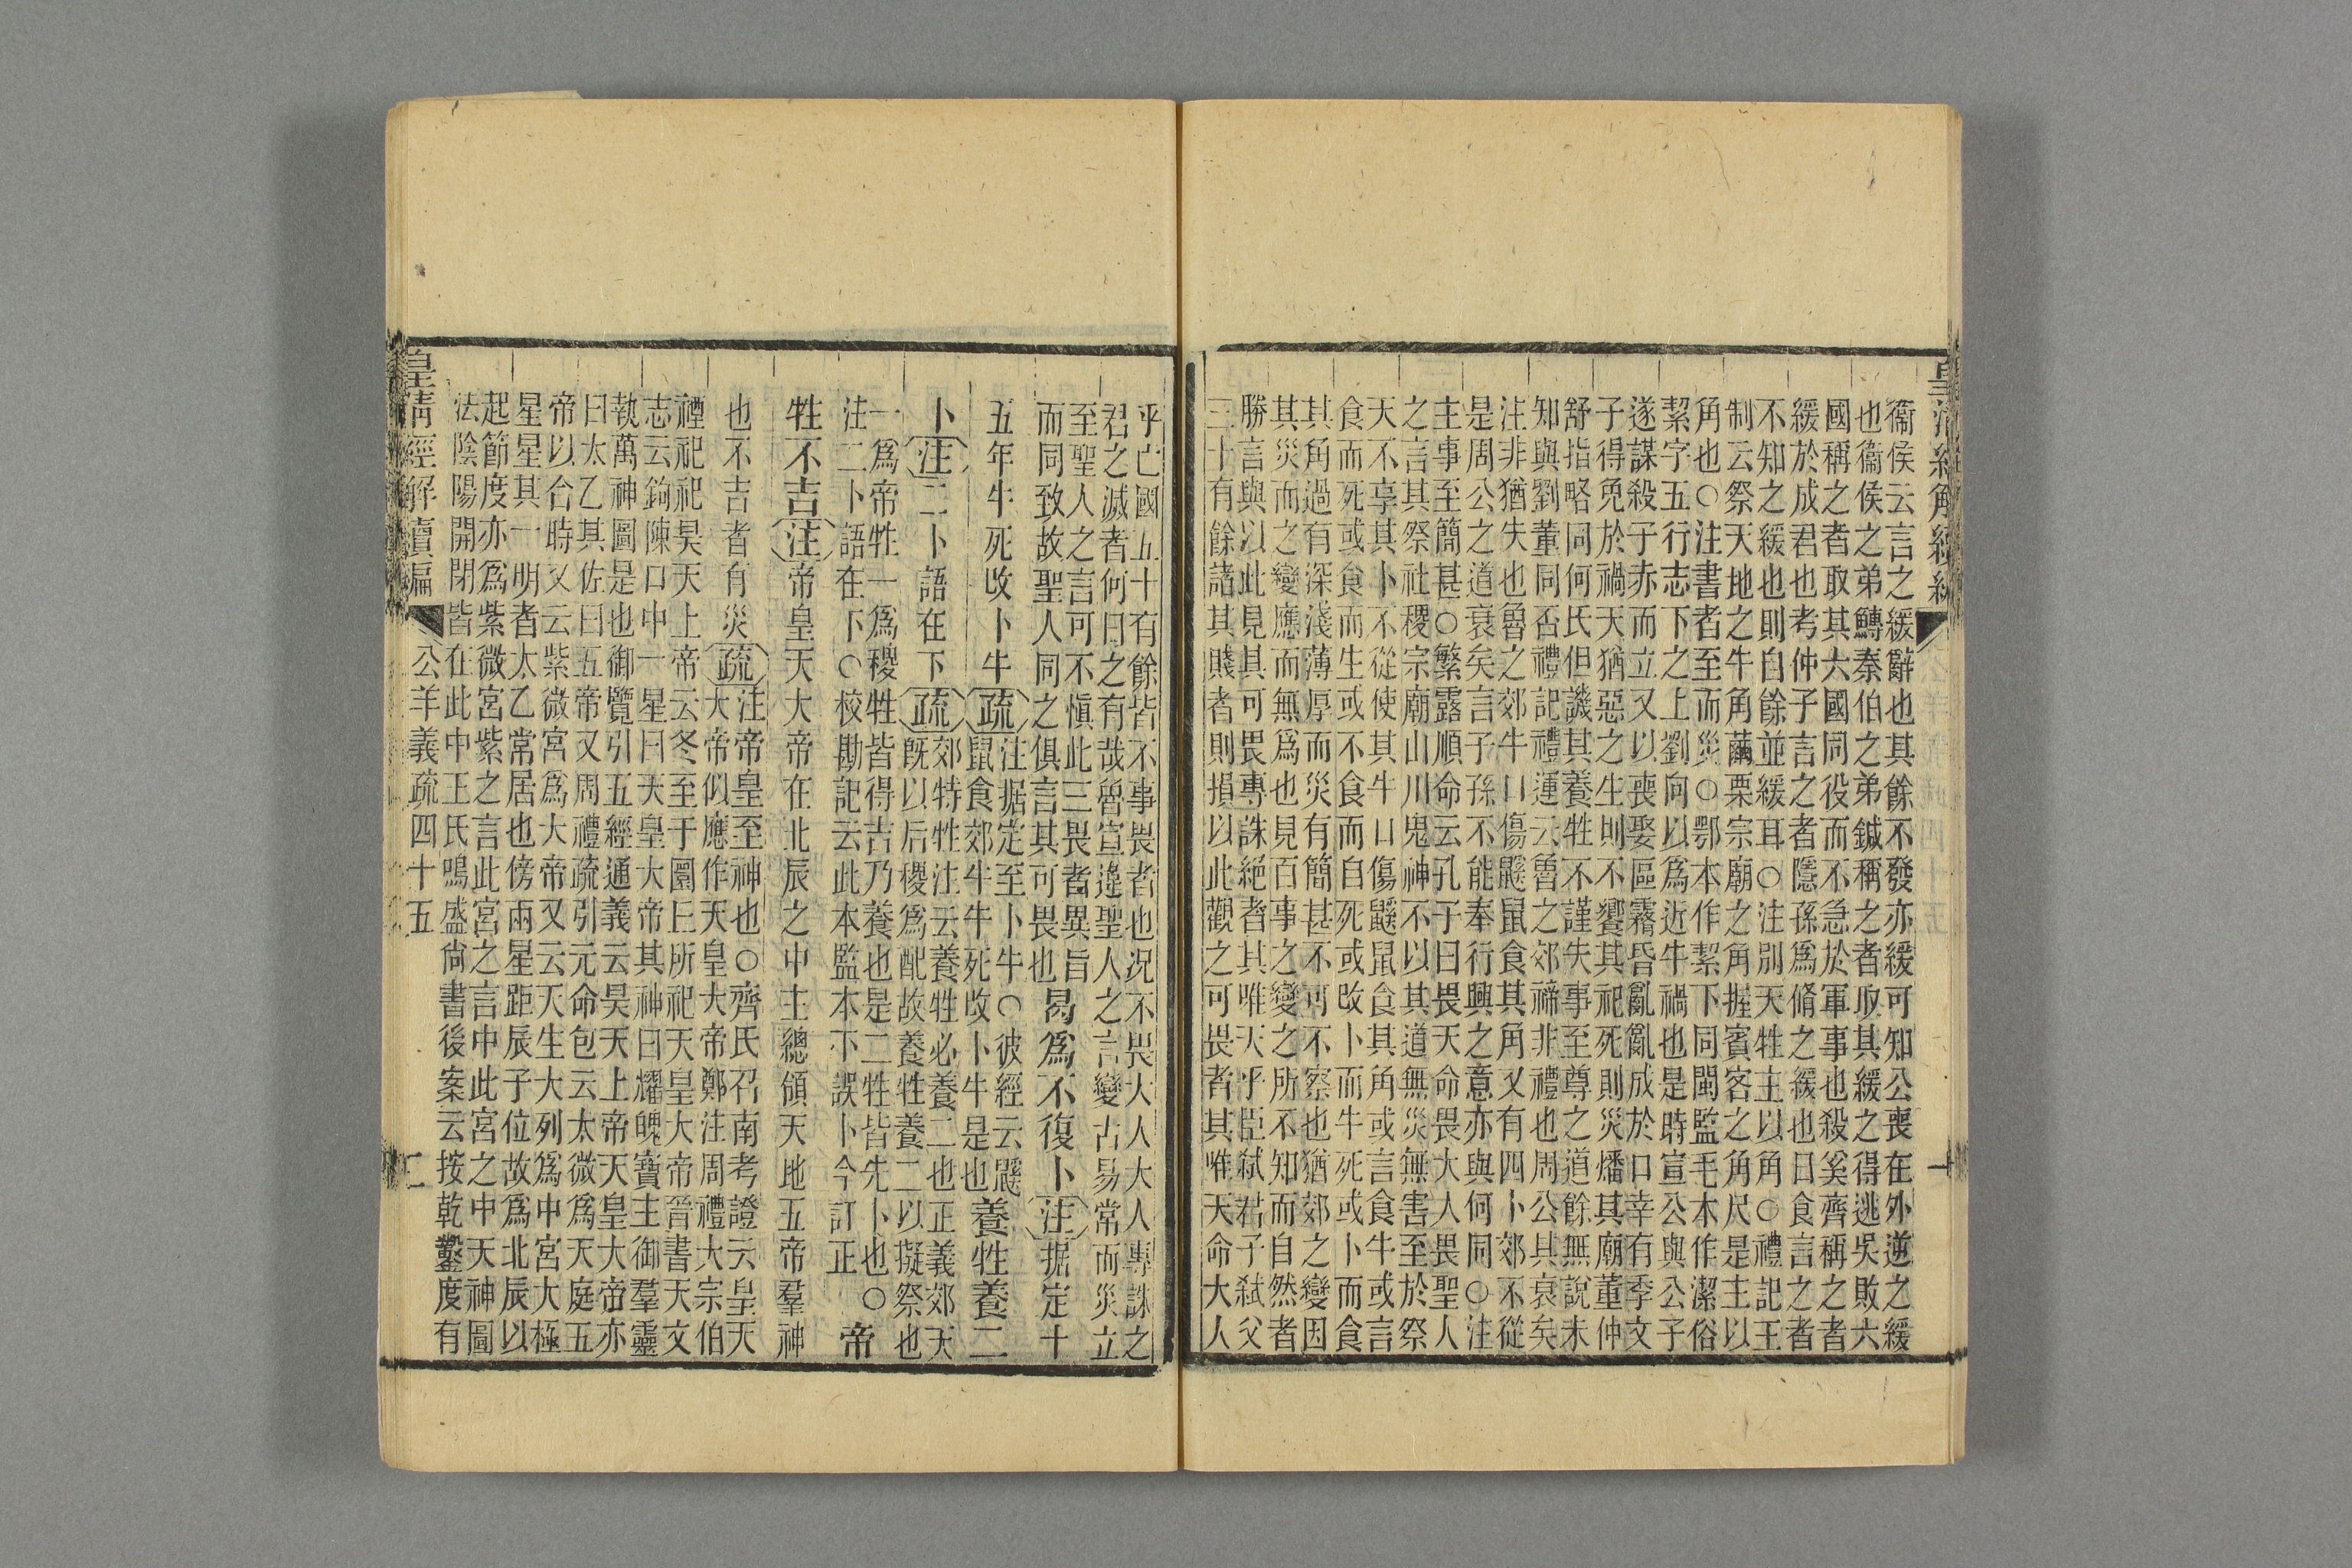 衞侯云言之緩辭也其餘不發亦緩可知公喪在外逆之緩
也衞侯之弟鱄秦伯之弟鍼稱之者取其緩之得逃吳敗六
國稱之者取其大國同役而不急於軍事也殺奚齊稱之者
緩於成君也考仲子言之者隱孫爲脩之緩也日食言之者
不知之緩也則自餘並緩耳○注別天牲主以角○禮記王
制云祭天地之牛角繭栗宗廟之角握賓客之角尺是主以
角也○注書者至而災○鄂本作絜下同閩監毛本作潔俗
絜字五行志下之上劉向以爲近牛禍也是時宣公與公子
遂謀殺子赤而立又以喪娶區霿昏亂亂成於口幸有季文
子得免於禍天猶惡之生則不饗其祀死則災燔其廟董仲
舒指略同何氏但譏其養牲不謹失事至尊之道餘無說未
知與劉董同否禮記禮運云魯之郊禘非禮也周公其衰矣
注非猶失也魯之郊牛口傷鼷鼠食其角又有四卜郊不從
是周公之道衰矣言子孫不能奉行興之意亦與何同○注
主事至簡甚○繁露順命云孔子曰畏天命畏大人畏聖人
之言其祭社稷宗廟山川鬼神不以其道無災無害至於祭
天不享其卜不從使其牛口傷鼷鼠食其角或言食牛或言
食而死或食而生或不食而自死或改卜而牛死或卜而食
其角過有深淺薄厚而災有簡甚不可不察也猶郊之變因
其災而之變應而無爲也見百事之變之所不知而自然者
勝言與以此見其可畏專誅絕者其唯天乎臣弒君子弒父
三十有餘諸其賤者則損以此觀之可畏者其唯天命大人
乎亡國五十有餘皆不事畏者也况不畏大人大人專誅之
君之滅者何日之有哉魯宣違聖人之言變古易常而災立
至聖人之言可不愼此三畏者異旨
而同致故聖人同之俱言其可畏也曷爲不復卜注据定十
五年牛死改卜牛疏注据定至卜牛○彼經云鼷
鼠食郊牛牛死改卜牛是也養牲養二
卜注二卜語在下疏郊特牲注云養牲必養二也正義郊天
既以后稷爲配故養牲養二以擬祭也
一爲帝牲一爲稷牲皆得吉乃養也是二牲皆先卜也○
注二卜語在下○校勘記云此本監本下誤卜今訂正帝
牲不吉注帝皇天大帝在北辰之中主總領天地五帝羣神
也不吉者有災疏注帝皇至神也○齊氏召南考證云皇天
大帝似應作天皇大帝鄭注周禮大宗伯
禋祀祀昊天上帝云冬至于圜丘所祀天皇大帝晉書天文
志云鉤陳口中一星曰天皇大帝其神曰耀魄寶主御羣靈
執萬神圖是也御覽引五經通義云昊天上帝天皇大帝亦
曰太乙其佐曰五帝又周禮疏引元命包云太微爲天庭五
帝以合時又云紫微宮爲大帝又云天生大列爲中宮大極
星星其一明者太乙常居也傍兩星距辰子位故爲北辰以
起節度亦爲紫微宮紫之言此宮之言中此宮之中天神圖
法陰陽開閉皆在此中王氏鳴盛尙書後案云按乾鑿度有
皇清經解續編 公羊義疏四十五 二